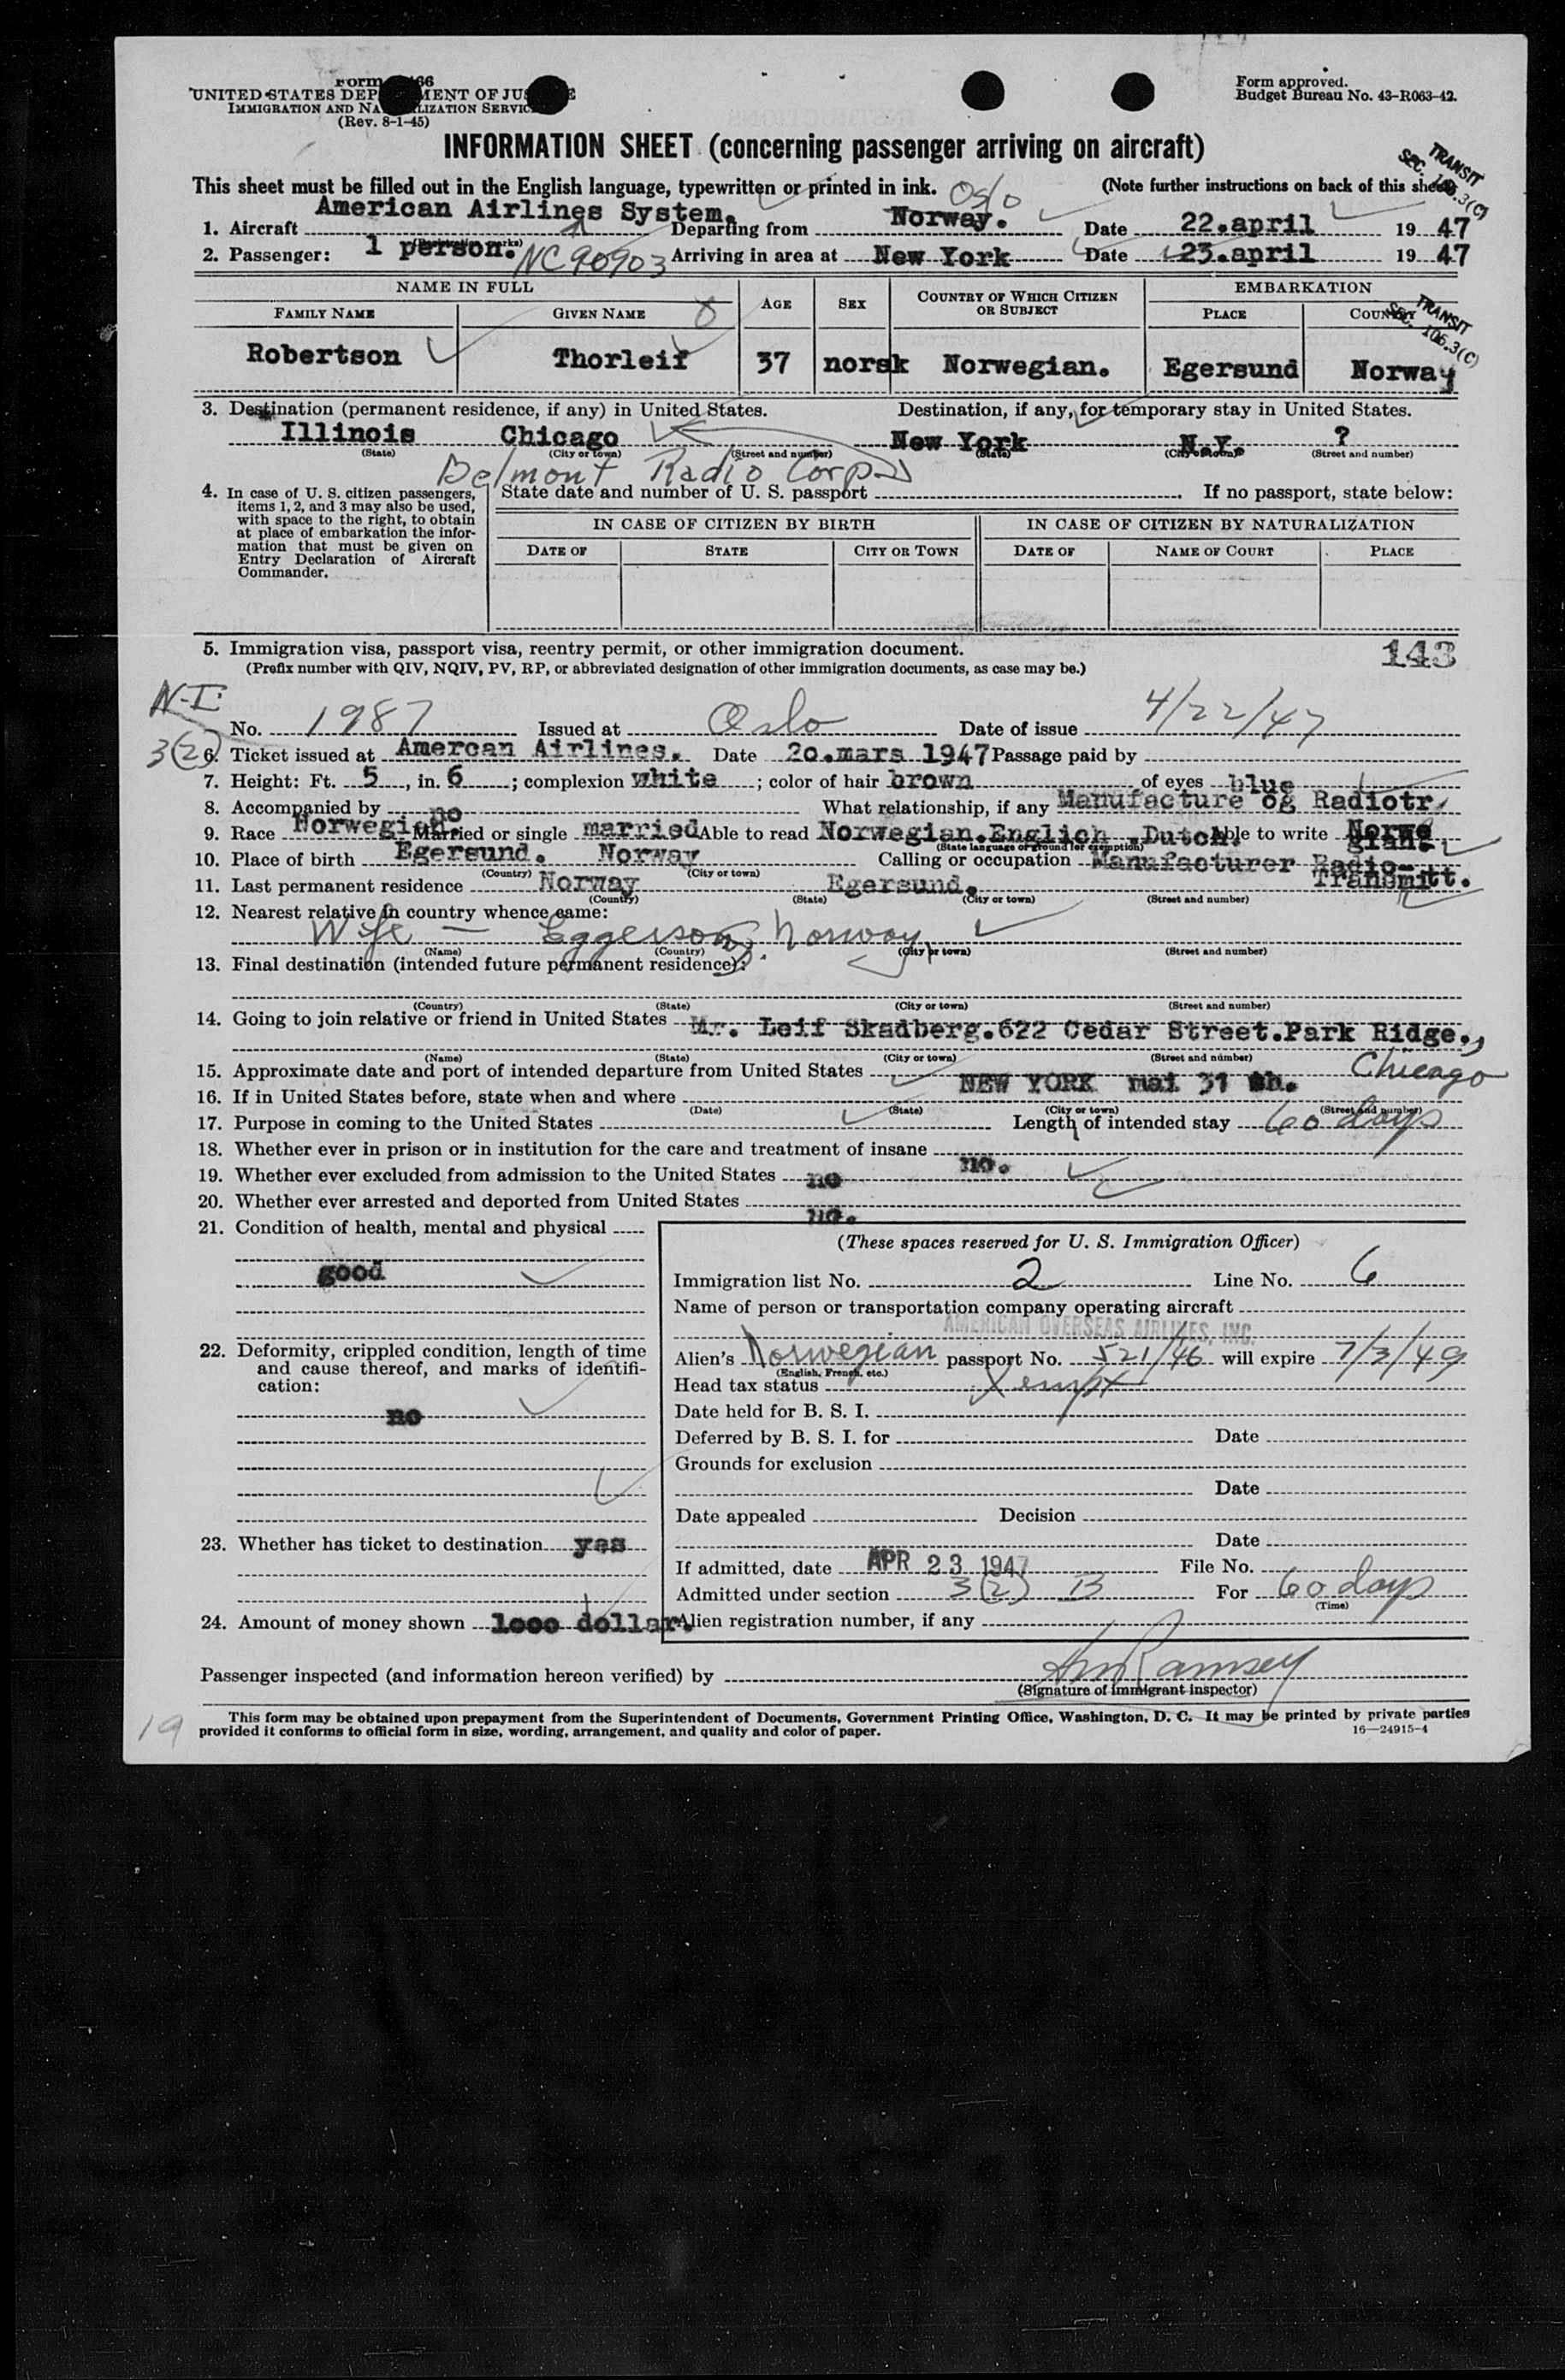 Form 66
UNITED STATES DEP MENT OF JUS E
IMMIGRATION AND NA LIZATION SERVIC
(Rev. 8-1-45)
Form approved.
Budget Bureau No. 43-R063-42.
INFORMATION SHEET (concerning passenger arriving on aircraft)
TRANSIT
SEC. 105.3(C)
This sheet must be filled out in the English language, typewritten or printed in ink. (Note further instructions on back of this sheet)
Oslo
1. Aircraft American Airlines System. Departing from Norway. Date 22.april 1947
2. Passenger: 1 person. NC90903 Arriving in area at New York Date 23.april 1947
NAME IN FULL AGE SEX COUNTRY OF WHICH CITIZEN OR SUBJECT EMBARKATION
FAMILY NAME GIVEN NAME PLACE COUNTRY
TRANSIT
SEC. 105.3(C)
Robertson Thorleif 37 norsk Norwegian. Egersund Norway
3. Destination (permanent residence, if any) in United States. Destination, if any, for temporary stay in United States.
Illinois Chicago New York N.Y. ?
(State) (City or town) (Street and number) (State) (City or town) (Street and number)
Belmont Radio Corp
4. In case of U. S. citizen passengers, items 1, 2, and 3 may also be used, with space to the right, to obtain at place of embarkation the information that must be given on Entry Declaration of Aircraft Commander.
State date and number of U. S. passport If no passport, state below:
IN CASE OF CITIZEN BY BIRTH IN CASE OF CITIZEN BY NATURALIZATION
DATE OF STATE CITY OR TOWN DATE OF NAME OF COURT PLACE
5. Immigration visa, passport visa, reentry permit, or other immigration document.
143
(Prefix number with QIV, NQIV, PV, RP, or abbreviated designation of other immigration documents, as case may be.)
N-I
No. 1987 Issued at Oslo Date of issue 4/22/47
3(2)
6. Ticket issued at Amercan Airlines. Date 20.mars 1947 Passage paid by
7. Height: Ft. 5, in. 6; complexion white; color of hair brown of eyes blue
8. Accompanied by no What relationship, if any Manufacture og Radiotr.
9. Race Norwegian. Married or single married Able to read Norwegian.Englich .Dutch. Able to write Norwe gian.
(State language or ground for exemption)
10. Place of birth Egersund. Norway Calling or occupation Manufacturer Radio-
(Country) (City or town)
Transmitt.
11. Last permanent residence Norway Egersund.
(Country) (State) (City or town) (Street and number)
12. Nearest relative in country whence came:
Wife — Eggerson, Norway
(Name) (Country) (City or town) (Street and number)
13. Final destination (intended future permanent residence):
(Country) (State) (City or town) (Street and number)
14. Going to join relative or friend in United States Mr. Leif Skadberg.622 Cedar Street.Park Ridge.,
(Name) (State) (City or town) (Street and number)
Chicago
15. Approximate date and port of intended departure from United States NEW YORK mai 31 th.
16. If in United States before, state when and where
(Date) (State) (City or town) (Street and number)
17. Purpose in coming to the United States Length of intended stay 60 days
18. Whether ever in prison or in institution for the care and treatment of insane no.
19. Whether ever excluded from admission to the United States no
20. Whether ever arrested and deported from United States no.
21. Condition of health, mental and physical
good
22. Deformity, crippled condition, length of time and cause thereof, and marks of identification:
no
23. Whether has ticket to destination yes
24. Amount of money shown 1000 dollar.
(These spaces reserved for U. S. Immigration Officer)
Immigration list No. 2 Line No. 6
Name of person or transportation company operating aircraft
AMERICAN OVERSEAS AIRLINES, INC.
Alien's Norwegian passport No. 521/46 will expire 7/3/49
(English, French, etc.)
Head tax status Xempt
Date held for B. S. I.
Deferred by B. S. I. for Date
Grounds for exclusion
Date
Date appealed Decision
Date
If admitted, date APR 23 1947 File No.
Admitted under section 3(2) B For 60 days
(Time)
Alien registration number, if any
Passenger inspected (and information hereon verified) by Ramsey
(Signature of immigrant inspector)
19
This form may be obtained upon prepayment from the Superintendent of Documents, Government Printing Office, Washington, D. C. It may be printed by private parties
provided it conforms to official form in size, wording, arrangement, and quality and color of paper.
16—24915-4